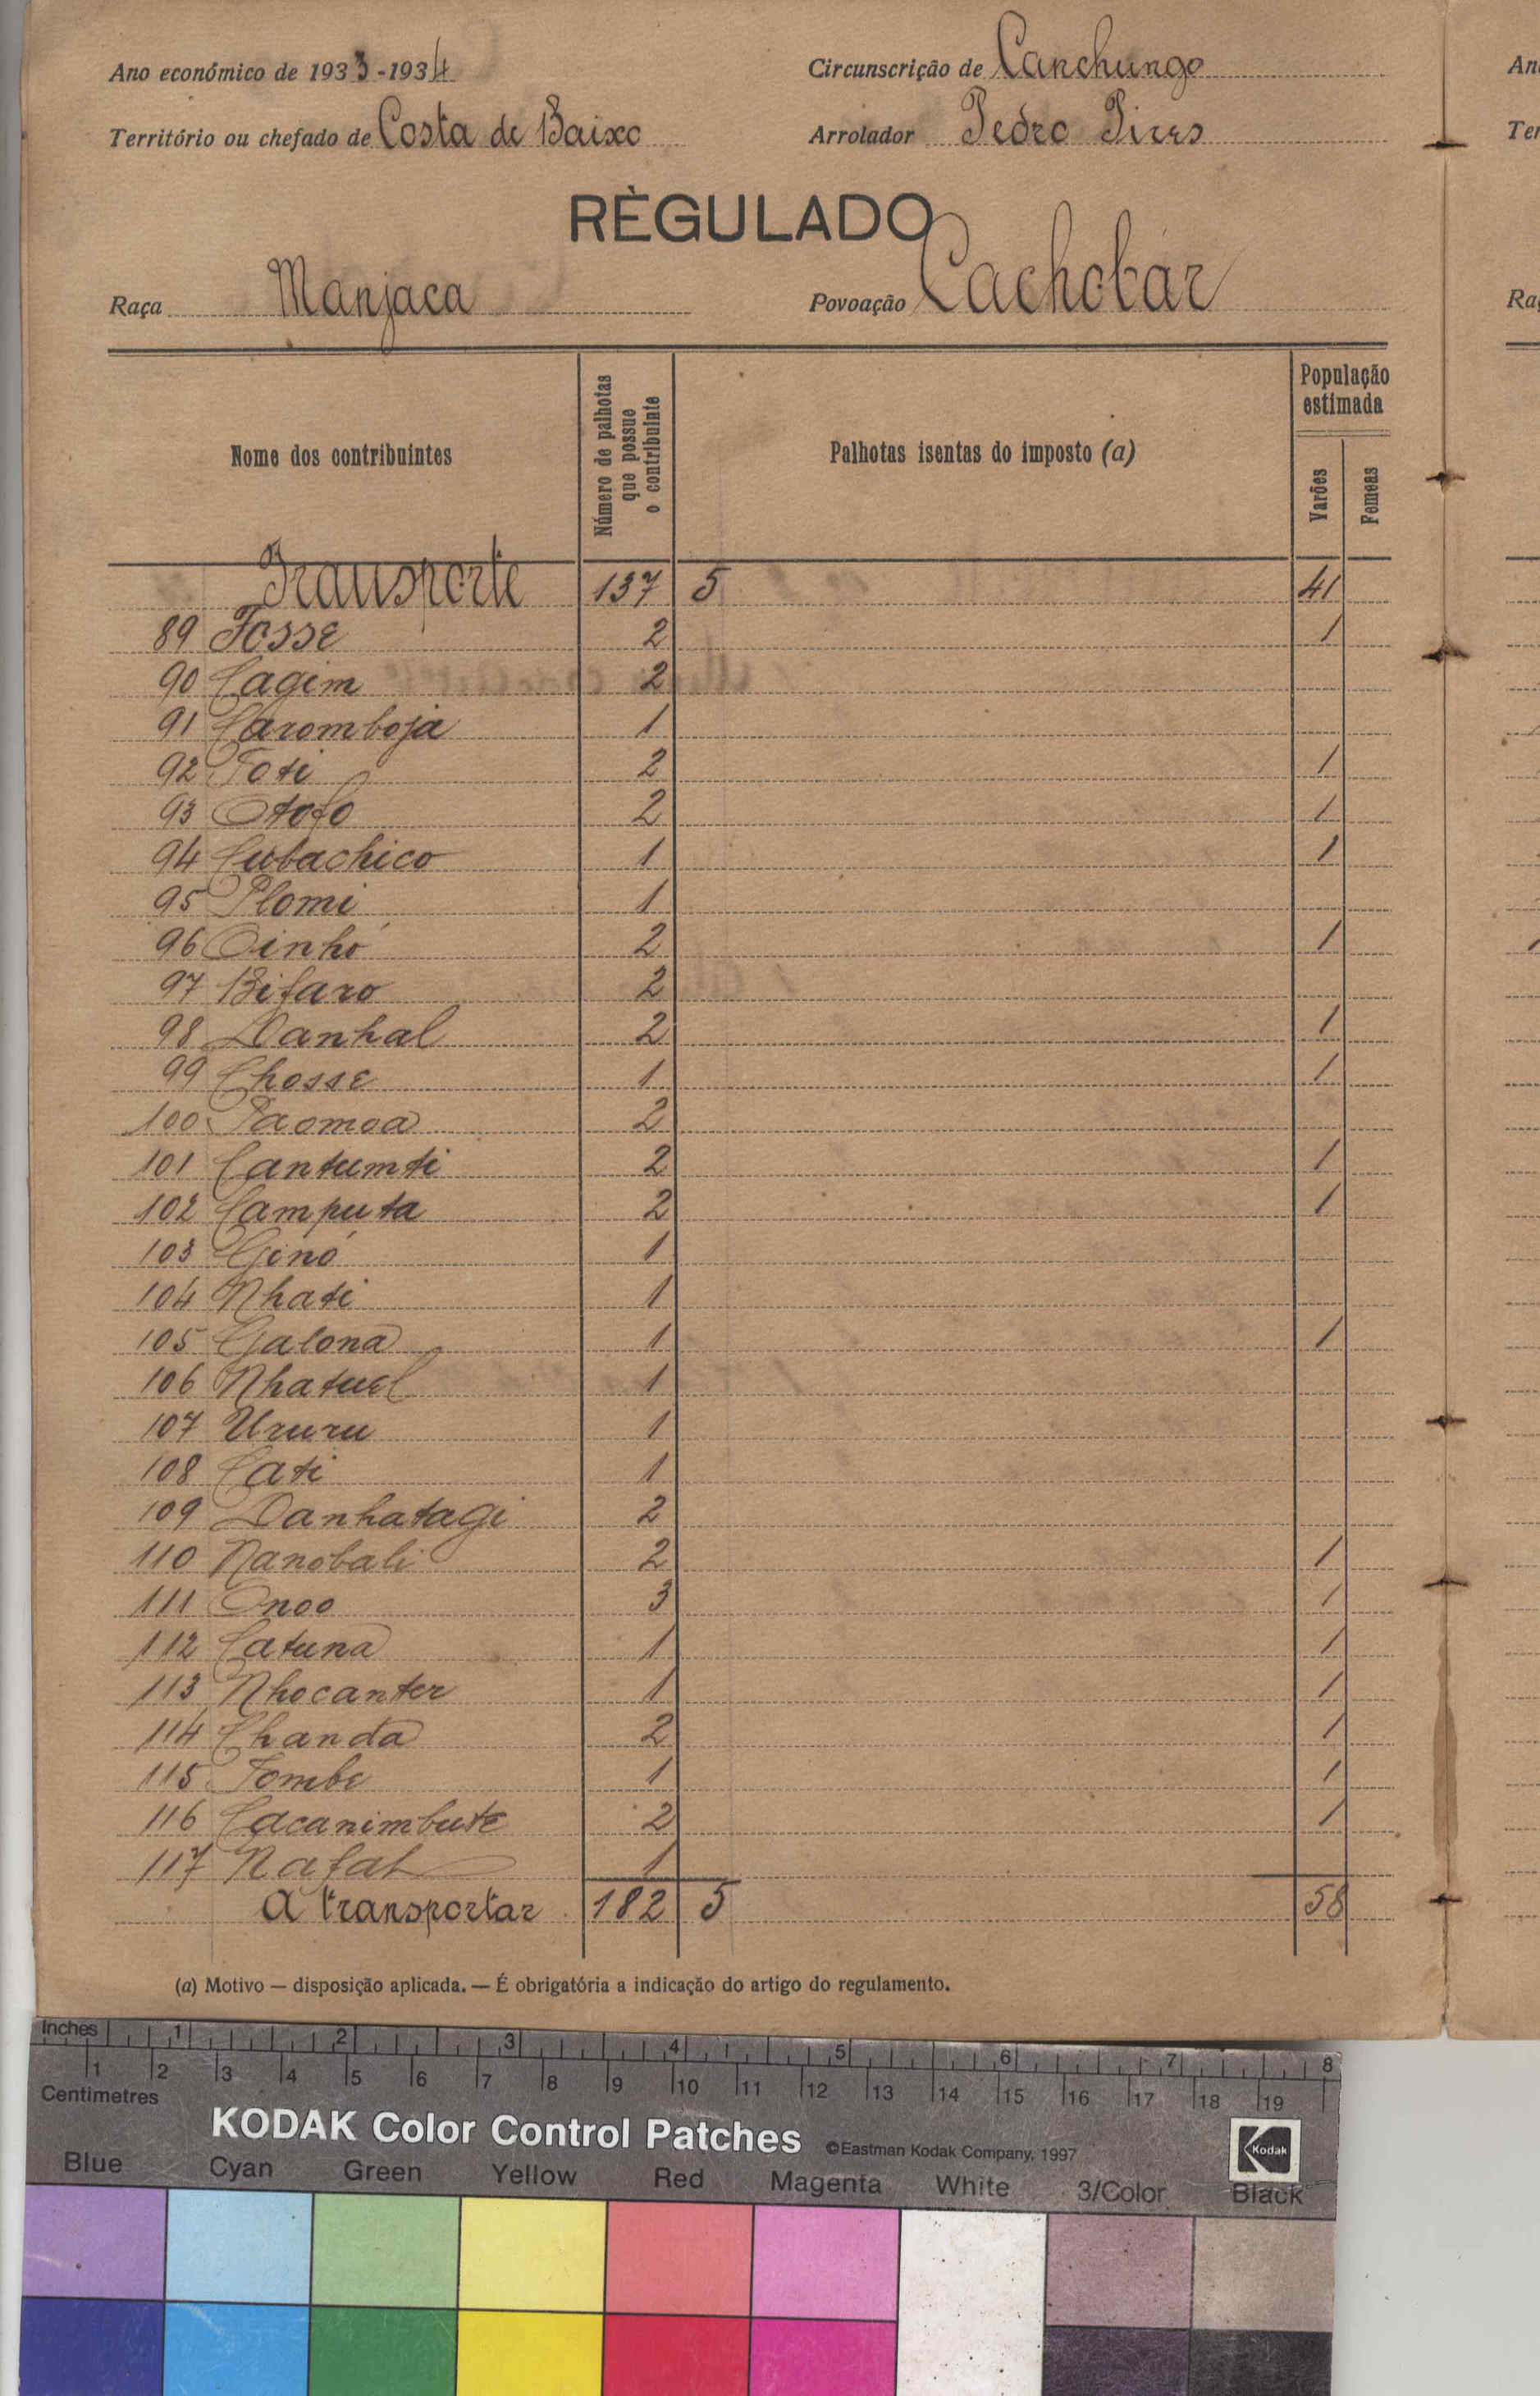 Ano económico de 1933-1934 Circunscrição de Canchungo
Território ou chefado de Costa de Baixo Arrolador Pedro Pires
RÈGULADO
Raça Manjaca Povoação Cachobár
Nome dos contribuintes
Número de palhotas
que possue
o contribuinte
Palhotas isentas do imposto (a)
População
estimada
Varões
Femeas
Transporte 137 5 41
89 Fosse 2 1
90 Cagim 2
91 Caromboja 1
92 Toti 2 1
93 Otofo 2 1
94 Cubachico 1 1
95 Plomi 1
96 Oinhó 2 1
97 Bifaro 2
98 Danhal 2 1
99 Chosse 1 1
100 Paomoa 2
101 Cantumti 2 1
102 Camputa 2 1
103 Ginó 1
104 Nhati 1
105 Galona 1 1
106 Nhatuel 1
107 Ururu 1
108 Cati 1
109 Danhatagi 2
110 Nanobali 2 1
111 Onoo 3 1
112 Catuna 1 1
113 Nhocanter 1 1
114 Chanda 2 1
115 Tombe 1 1
116 Cacanimbute 2 1
117 Nafal 1
A transportar 182 5 58
(a) Motivo — disposição aplicada. — É obrigatória a indicação do artigo do regulamento.
Inches 1 2 3 4 5 6 7 8
1 2 3 4 5 6 7 8 9 10 11 12 13 14 15 16 17 18 19
Centimetres
KODAK Color Control Patches ©Eastman Kodak Company, 1997 Kodak
Blue Cyan Green Yellow Red Magenta White 3/Color Black